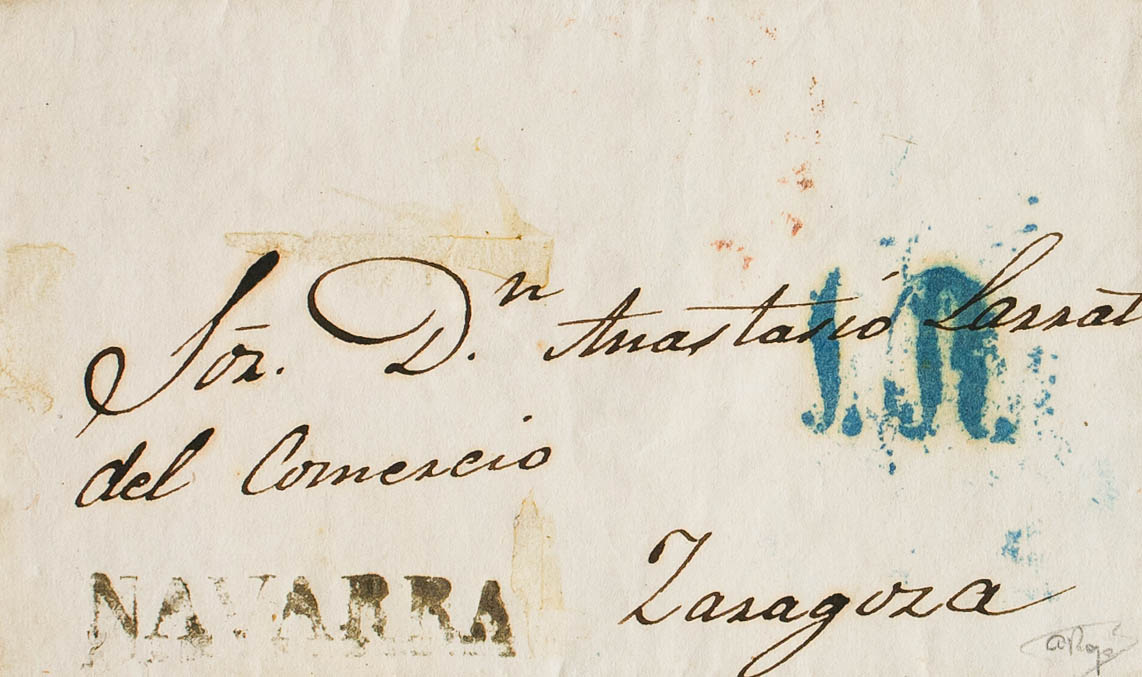 Sor. D.n Anastasio Larrat
1.R.
del Comercio
NAVARRA
Zaragoza